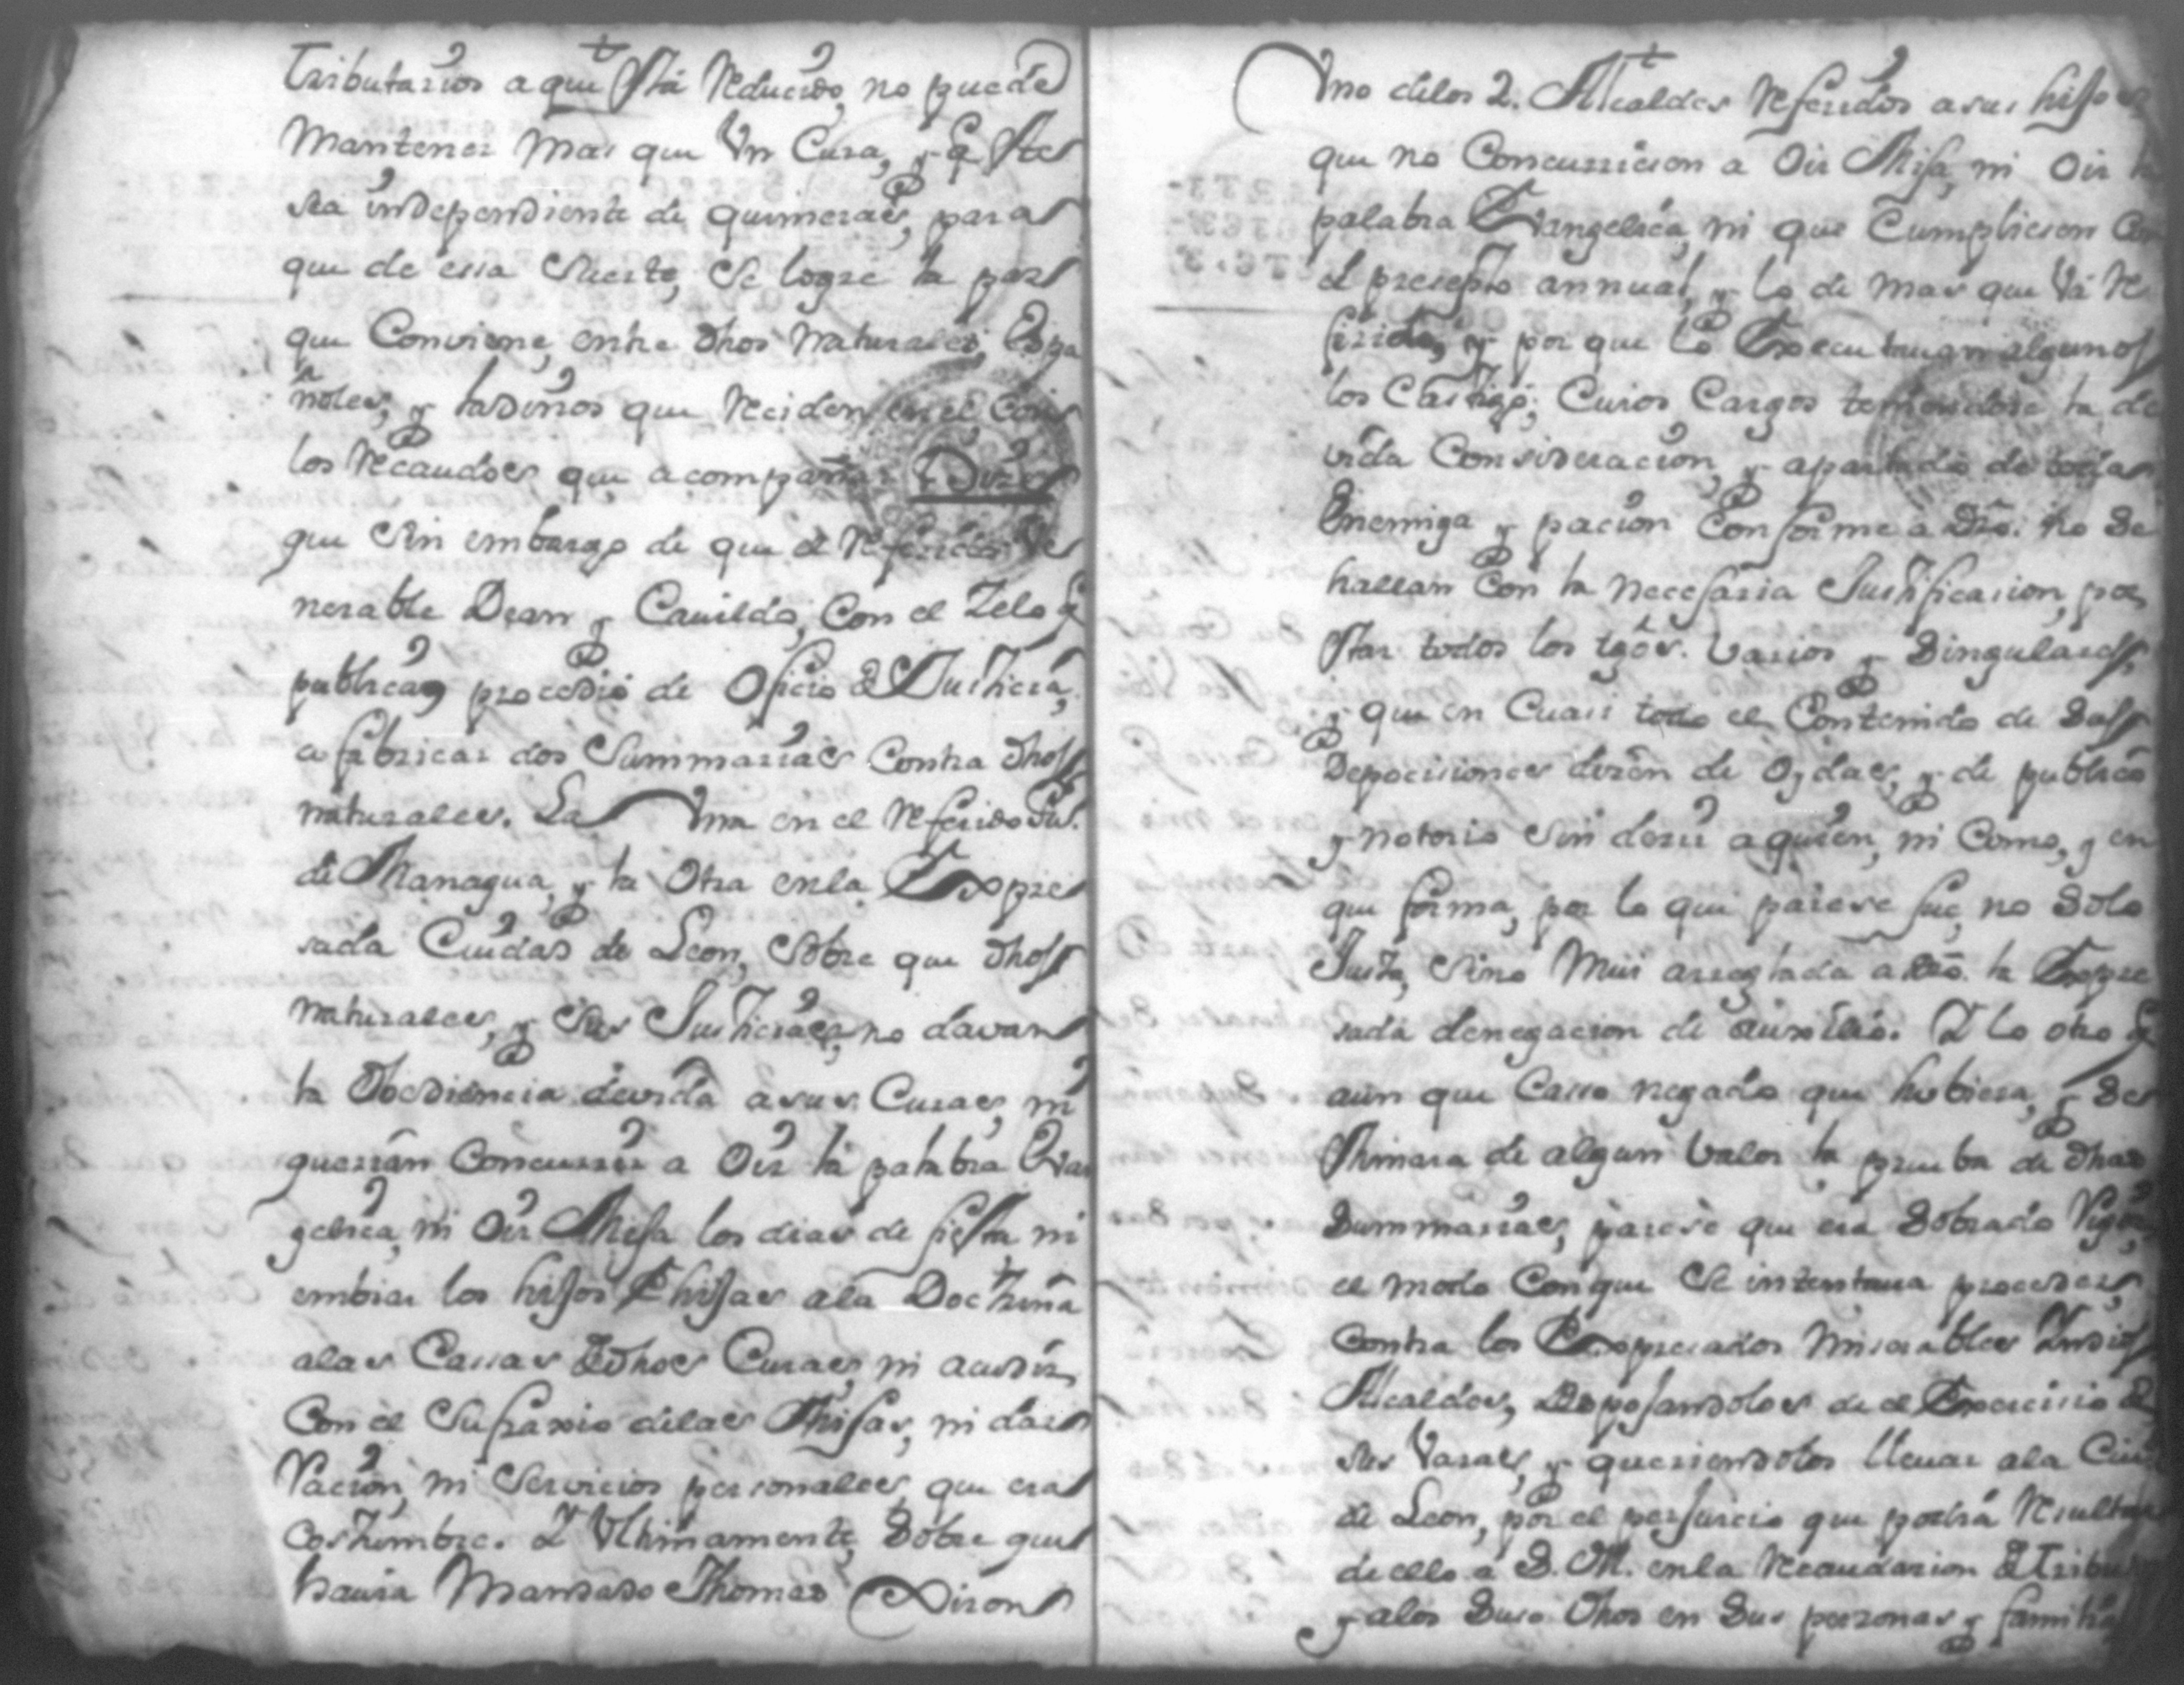 tributarios a que stá Reducido, no puede
Mantener Mas que Vn Cura, y q̃ ste
sea independiente de quimeras, para
que de essa Suerte, Se logre la paz
que Conviene, entre dhos Naturales, Espa
ñoles, y ladinos que Reciden en el, Con
los Recaudos que acompaña: Dize
que Sin embargo de que el Referido Ve
nerable Dean y Cauildo, Con el Zelo q̃
publica, procedió de Oficio de Justicia,
a fabricar dos Summarias Contra dhos
naturales. La Vna en el Referido Pu.º
de Managua, y la Otra en la Expre
sada Ciudad de Leon, Sobre que dhos
Naturales, y Sus Justicias, no davan
la Obediencia devida a sus Curas, ni
querian Concurrir a Oir la palabra Evan
gelica, ni Oir Missa los dias de fiesta ni
embiar los hijos e hijas a la Doctrina
a las Cassas de dhos Curas, ni acudir
Con el Sufraxio de las Missas, ni dar
Racion, ni Servicios personales, que era
Costumbre. Y Vltimamente, Sobre que
havia Mandado Thomas Diron
Vno de los 2. Alcaldes Referidos a sus hijos
que no Concurrieron a Oir Missa, ni Oir la
palabra Evangelica, ni que Cumplieron Con
el presepto annual, y lo de mas que Vá Re
ferido, y por que lo Executauan algunos
los Castigó; Cuios Cargos teniendose la de
vida Consideracion, y apartado de todas
Enemiga y pacion Conforme a Dro. no Se
hallan Con la necessaria Justificacion, por
star todos los tgõs. Varios y Singulares,
y que en Cuasi todo el Contenido de Sus
Depociciones dizen de Oydas, y de publico
y notorio Sin dezir a quien, ni Como, y en
que forma, por lo que parese fue, no Solo
Justa, Sino Mui arreglada a dro. la Expre
sada denegacion de Auxilio. Y lo otro q̃
aun que Casso negado que hubiera, y Se
stimara de algun Valor la prueba de dhas
Summarias, parese que era Sobrado Vigor,
el modo Con que Se intentaua proceder
Contra los Expresados Miserables Indios
Alcaldes, Depojandolos de el Exercicio de
Sus Varas, y queriendolos lleuar a la Ciud.
de Leon, por el perjuicio que podrá Resultar
de ello a S. M. en la Recaudacion de tribu
y a los Suso dhos en Sus personas y familia